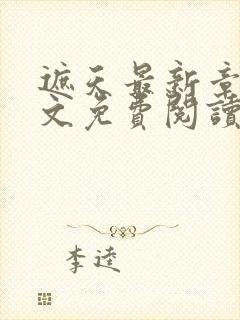 遮天最新章
文免費閱讀
李逵